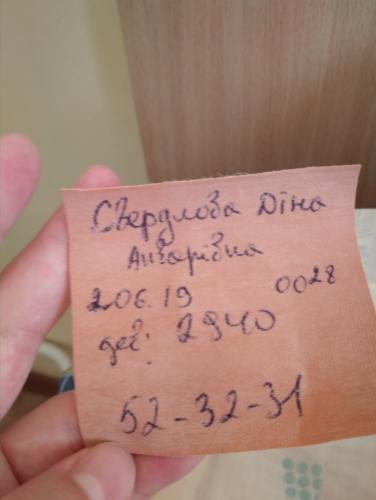 Свердлова Діна
Анварівна
2.06.19 0028
дев. 2940
52-32-31